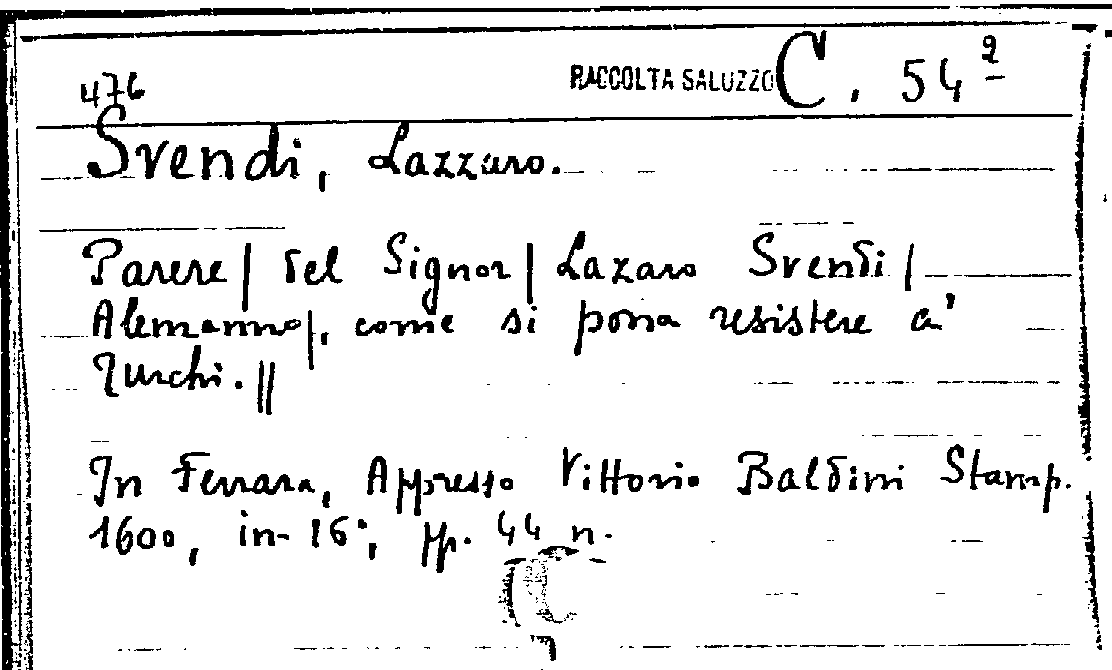 476 RACCOLTA SALUZZO C. 54²
Svendi, Lazzaro.
Parere | del Signor | Lazaro Svendi |
Alemanno |, come si possa resistere a'
Turchi. ||
In Ferrara, Appresso Vittorio Baldini Stamp.
1600, in-16°, pp. 44 n.